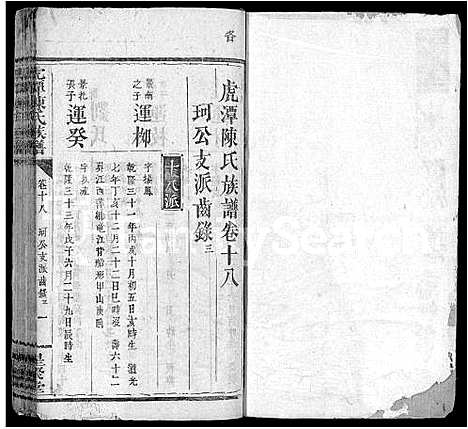 虎潭陳氏族譜卷十八
珂公支派齒錄三
十八派
景南之子
運柳
乾隆三十一年丙戌十月初五日亥時生 道光
七年丁亥十二月二十二日巳時沒 壽六十二
葬江西
景礼長子
運癸
乾隆三十三年戊子六月二十九日辰時生
虎潭陳氏族譜
卷十八 珂公支派齒錄三 一